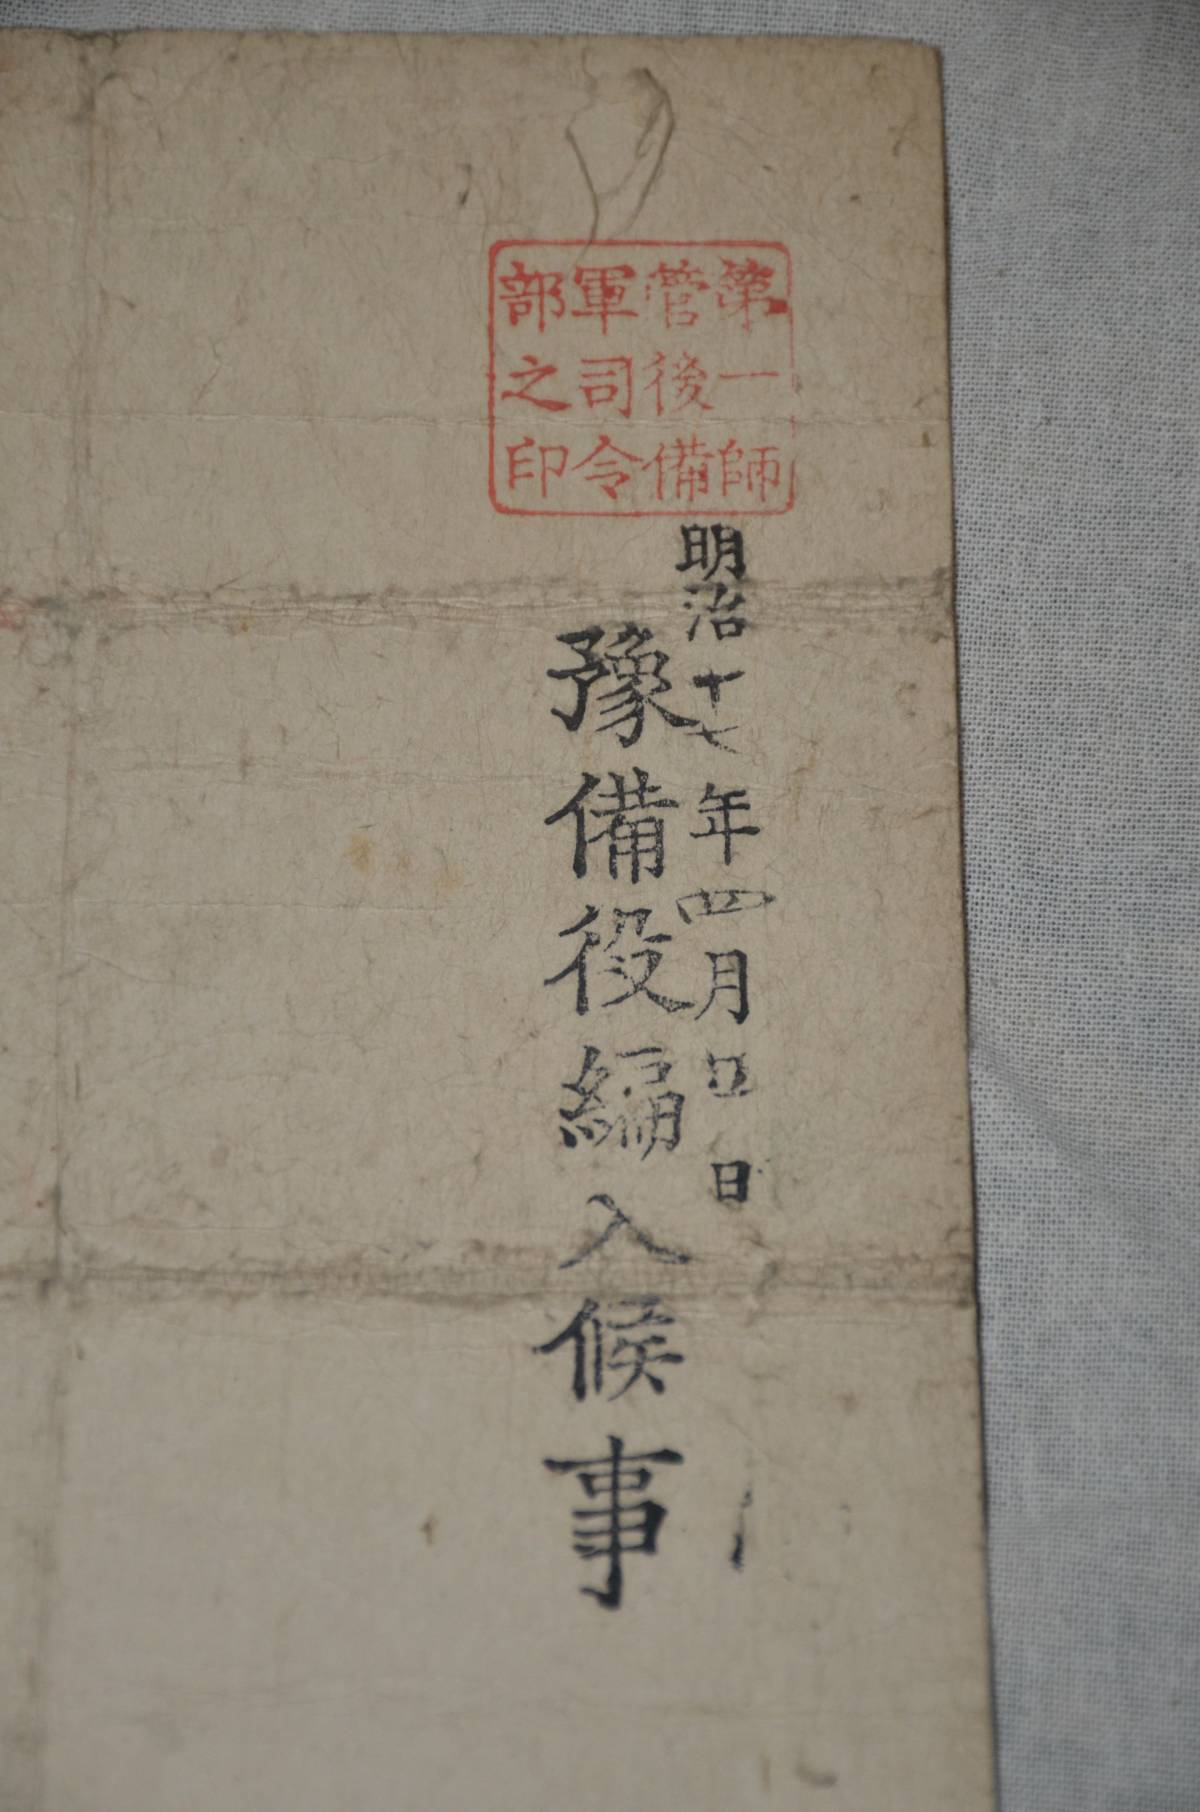 第一師
管後備
軍司令
部之印
明治十七年四月 日
豫備役編入候事